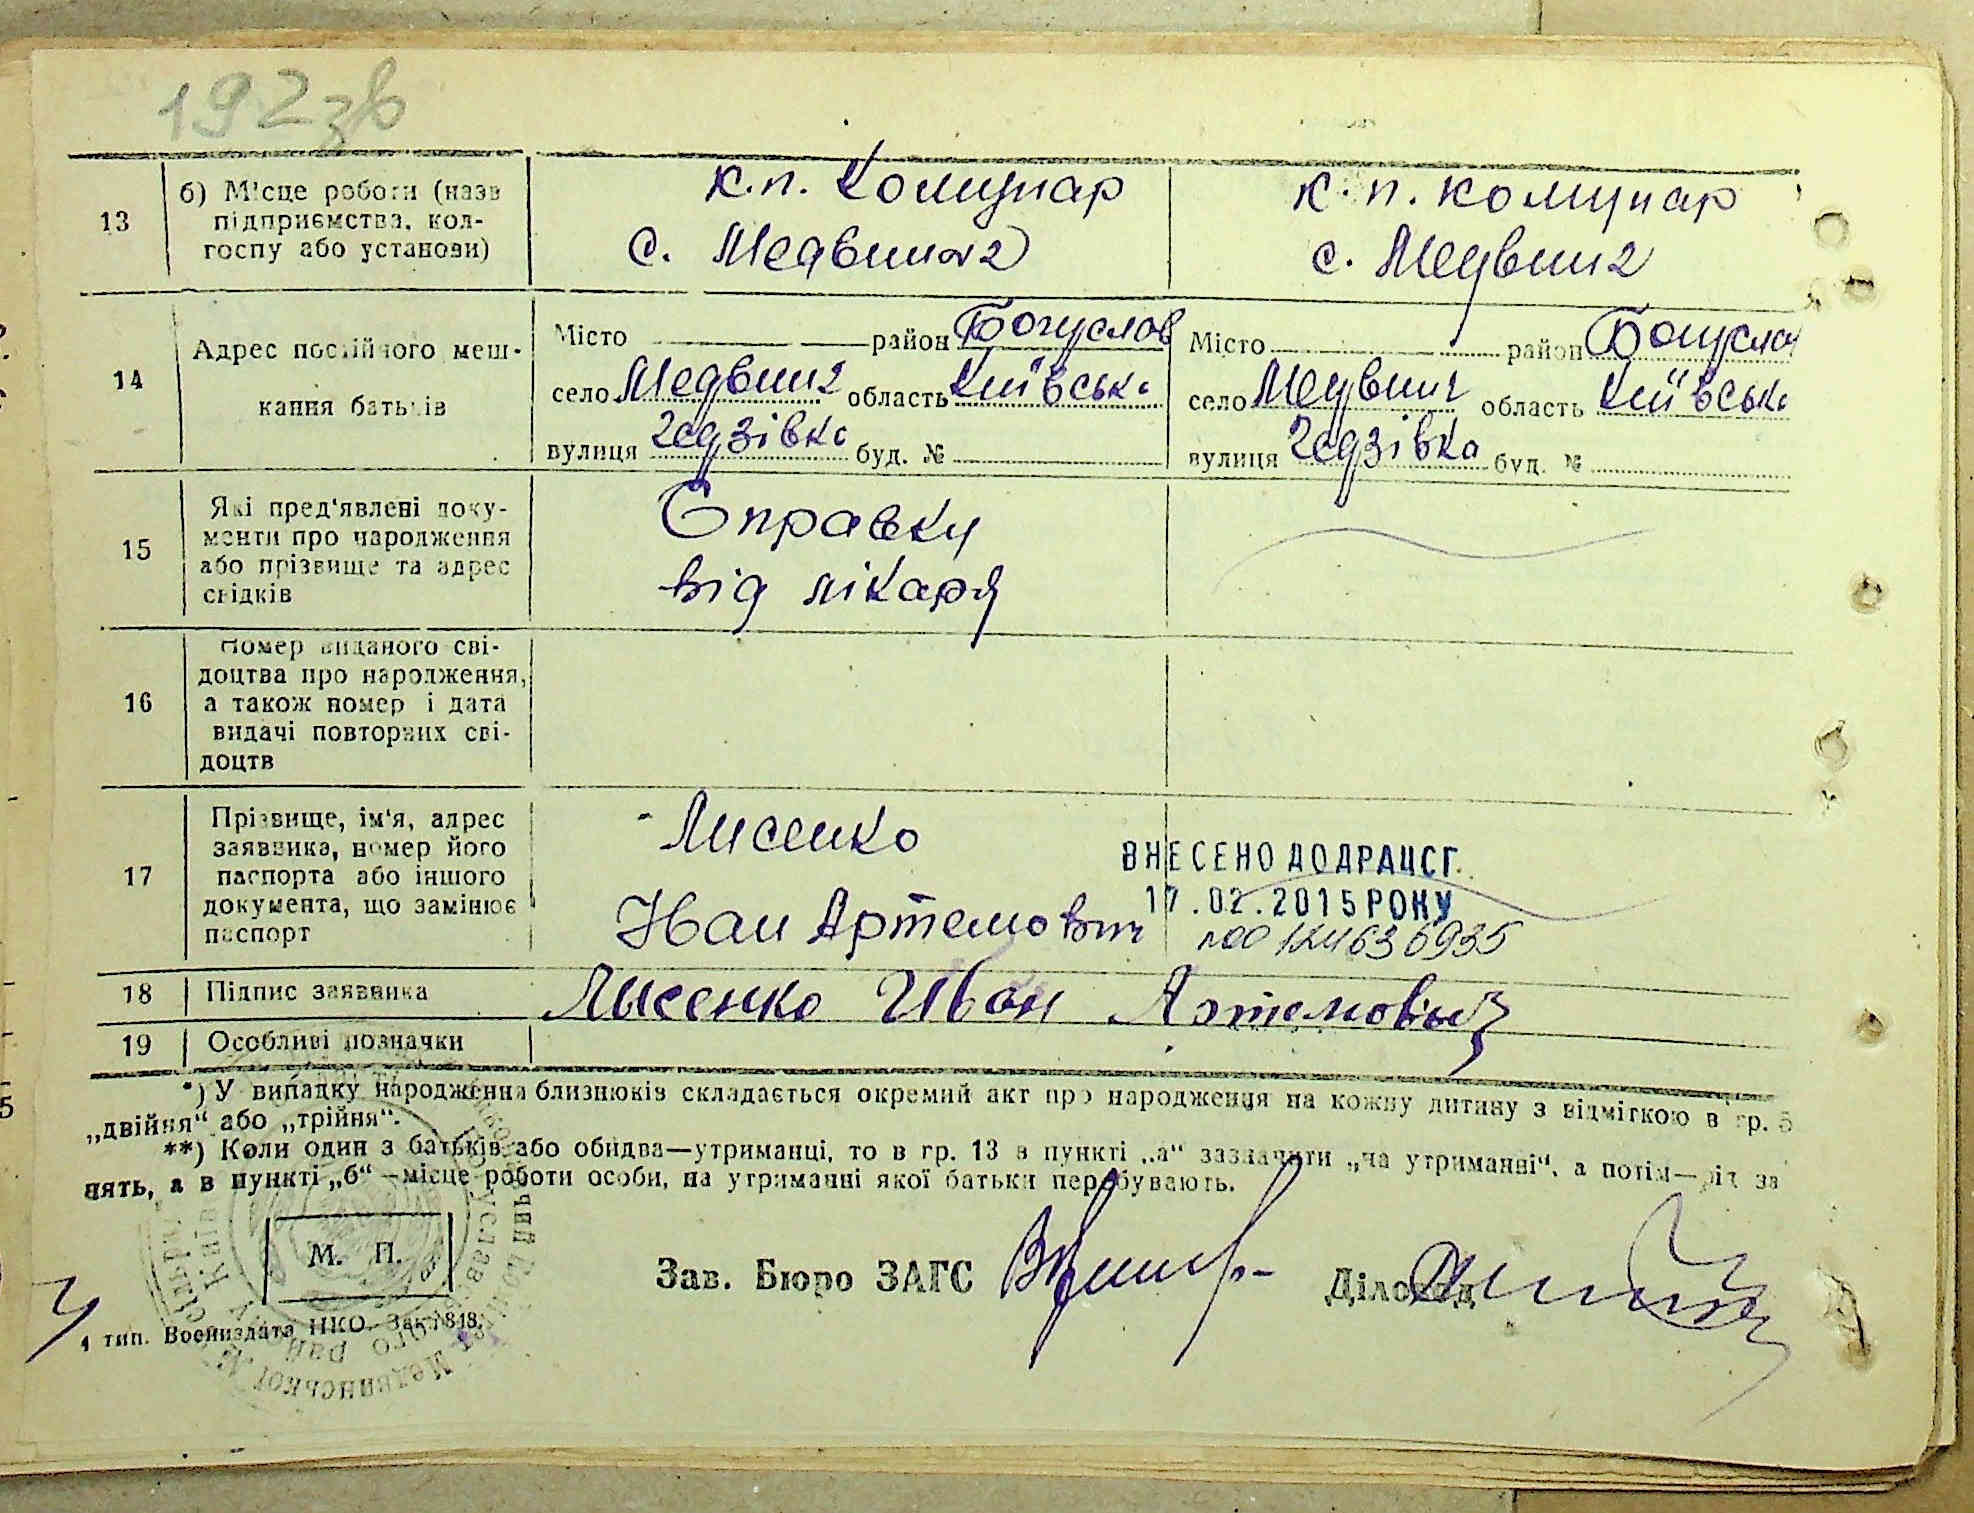 192 зв
13 б) Місце роботи (назв к.п. Комунар к.п. комунар
підприємства, кол-
госпу або установи) с. Медвин 2 с. Медвин 2
14 Адрес постійного меш-
кання батьків
Місто район Богуслав Місто район Богуслав
село Медвин 2 область Київська село Медвин область Київська
вулиця Гедзівка буд. № вулиця Гедзівка буд. №
15 Які пред'явлені доку-
менти про народження
або прізвище та адрес
свідків
Справку
від лікаря
16 Номер виданого сві-
доцтва про народження,
а також номер і дата
видачі повторних сві-
доцтв
17 Прізвище, ім'я, адрес
заявника, номер його
паспорта або іншого
документа, що замінює
паспорт
Лисенко
Іван Артемович
ВНЕСЕНО ДО ДРАЦСГ.
17.02.2015 РОКУ
18 Підпис заявника Лысенко Иван Артемовыч
19 Особливі позначки
*) У випадку народження близнюків складається окремий акт про народження на кожну дитину з відміткою в гр. 5
„двійня" або „трійня".
**) Коли один з батьків або обидва—утриманці, то в гр. 13 в пункті „а" зазначити „на утриманні", а потім—рід за
нять, а в пункті „б"—місце роботи особи, на утриманні якої батьки перебувають.
М. П.
Зав. Бюро ЗАГС Діловод
1 тип. Воениздата НКО. Зак. 818.